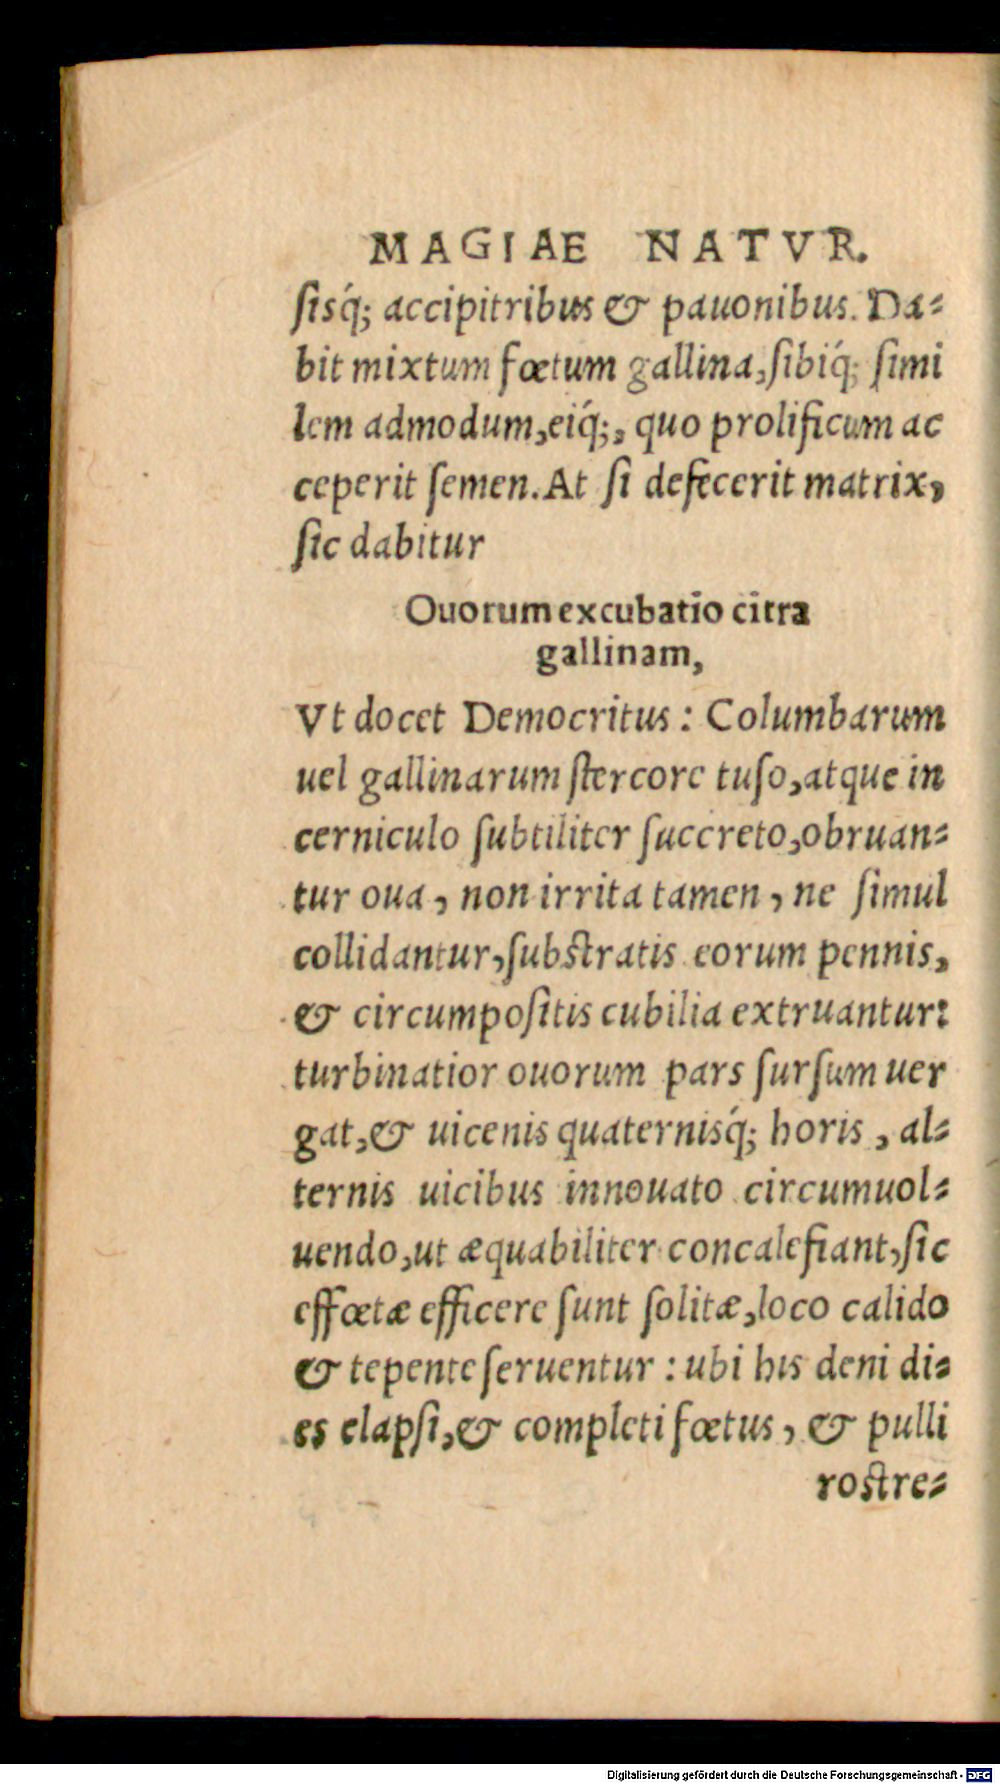 MAGIAE NATVR.
ſisq́; accipitribus & pauonibus. Da⸗
bit mixtum fœtum gallina, ſibiq́; ſimi
lem admodum, eiq́;, quo prolificum ac
ceperit ſemen. At ſi defecerit matrix,
ſic dabitur
Ouorum excubatio citra
gallinam,
Vt docet Democritus: Columbarum
uel gallinarum ſtercore tuſo, atque in
cerniculo ſubtiliter ſuccreto, obruan⸗
tur oua, non irrita tamen, ne ſimul
collidantur, ſubſtratis eorum pennis,
& circumpoſitis cubilia extruantur:
turbinatior ouorum pars ſurſum uer
gat, & uicenis quaternisq́; horis, al⸗
ternis uicibus innouato circumuol⸗
uendo, ut æquabiliter concalefiant, ſic
effœtæ efficere ſunt ſolitæ, loco calido
& tepente ſeruentur: ubi his deni di⸗
es elapſi, & completi fœtus, & pulli
roſtre⸗
Digitalisierung gefördert durch die Deutsche Forschungsgemeinschaft - DFG